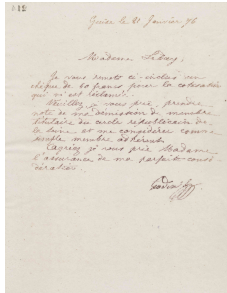 Guise le 21 Janvier 76
Madame
Je vous remets ci-inclus un
chèque de 60 francs pour la cotisation
qui m'est réclamée.
Veuillez, je vous prie, prendre
note de ma démission de membre
titulaire du cercle républicain de
et me considérer comme
simple membre adhérent.
Agréez je vous prie Madame
l'assurance de ma parfaite consi
dération.
Godin